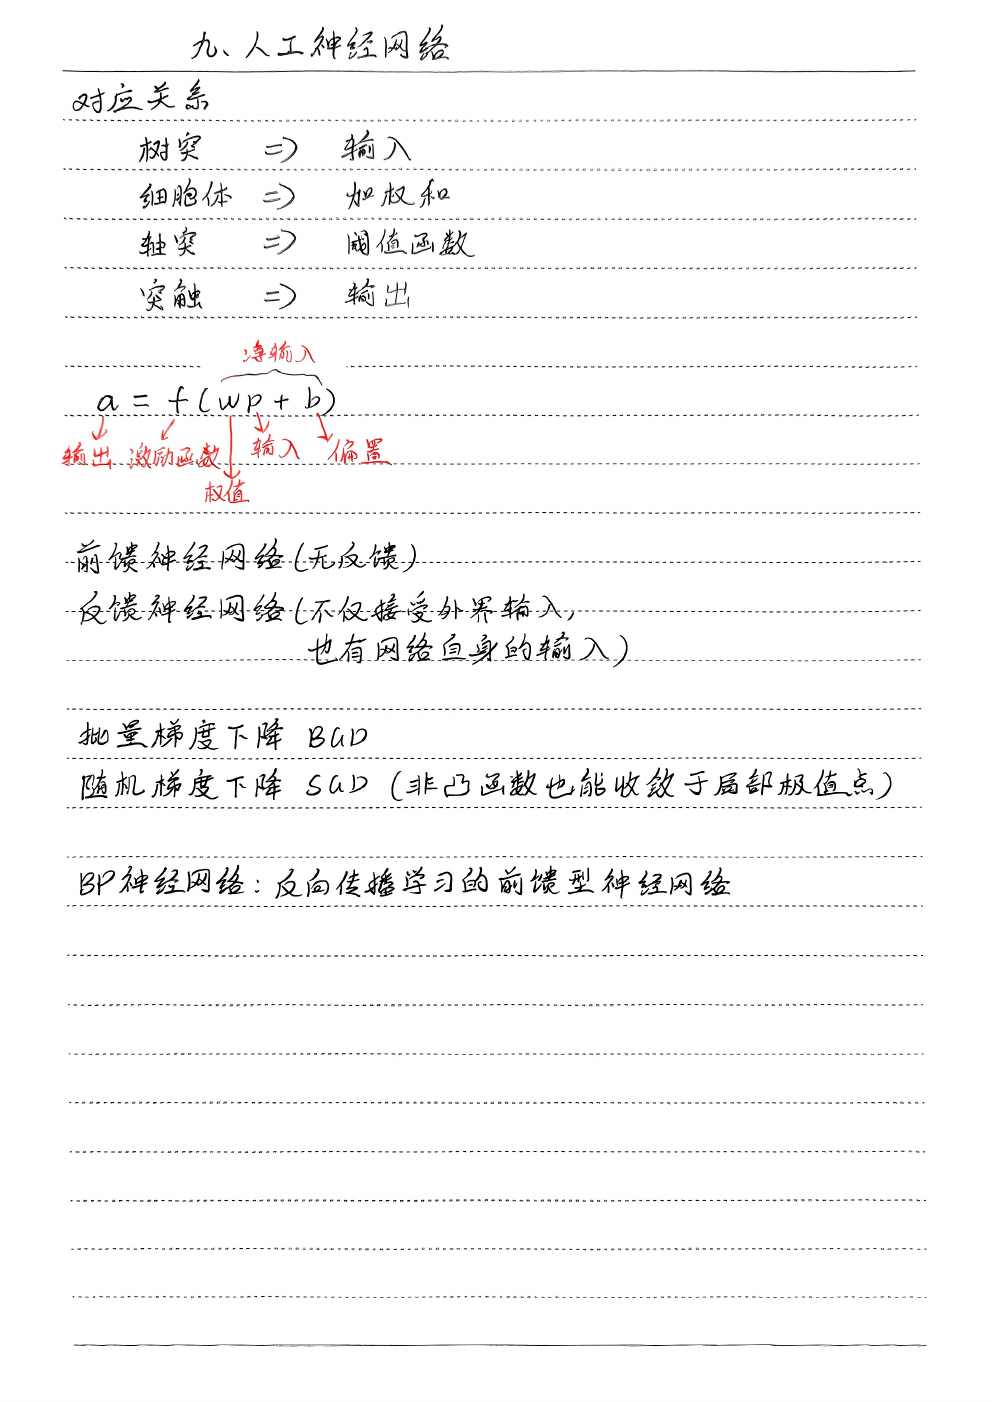 九、人工神经网络
对应关系
树突 => 输入
细胞体 => 加权和
轴突 => 阈值函数
突触 => 输出
净输入
a = f(wp+b)
输出 激励函数 输入 偏置
权值
前馈神经网络(无反馈)
反馈神经网络(不仅接受外界输入,
也有网络自身的输入)
批量梯度下降 BGD
随机梯度下降 SGD (非凸函数也能收敛于局部极值点)
BP神经网络: 反向传播学习的前馈型神经网络